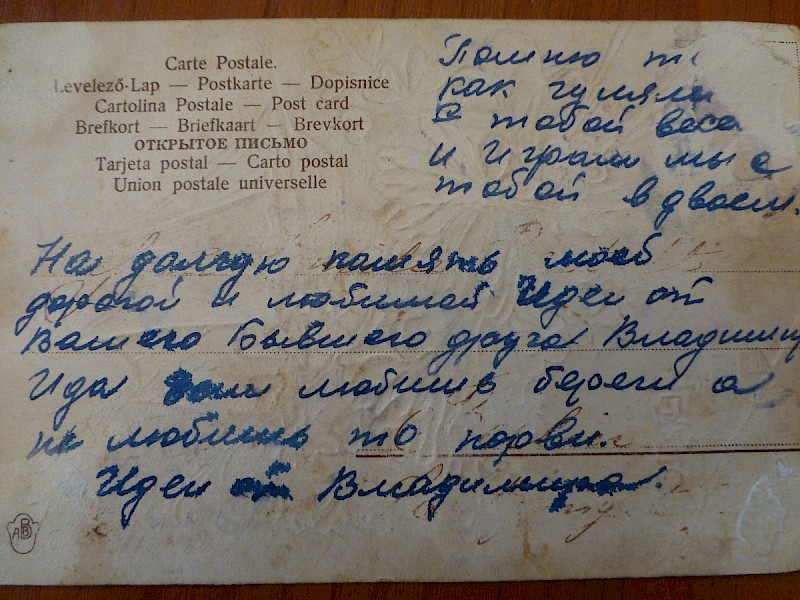 Carte Postale.
Levelező-Lap — Postkarte — Dopisnice
Cartolina Postale — Post card
Brefkort — Briefkaart — Brevkort
ОТКРЫТОЕ ПИСЬМО
Tarjeta postal — Carto postal
Union postale universelle
Помню
как гуляли
с тобой
и играли мы с
тобой в двоем.
На долгую память моей
дорогой и любимой Идеи от
Вашего Бывшего друга Владимир
Ида любишь береги а
не любишь то порви.
Идеи от Владимира.
ABD